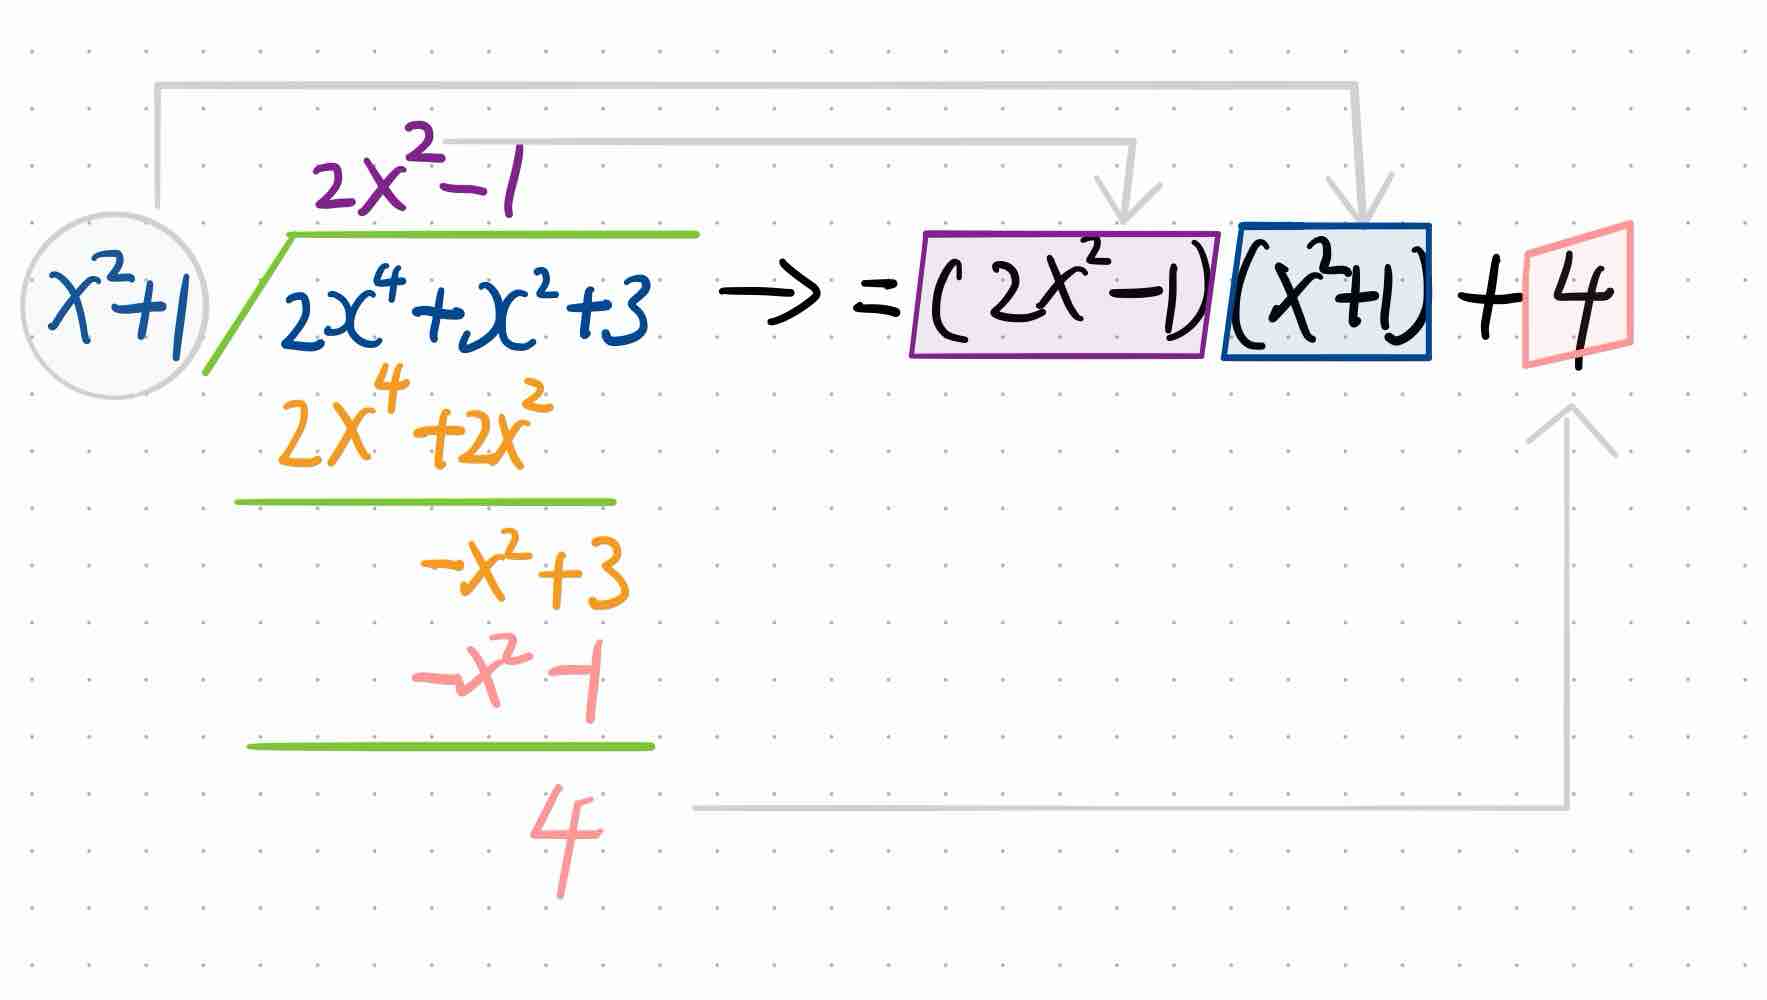 2x²-1
x²+1 2x⁴+x²+3 → =(2x²-1)(x²+1)+4
2x⁴+2x²
-x²+3
-x²-1
4